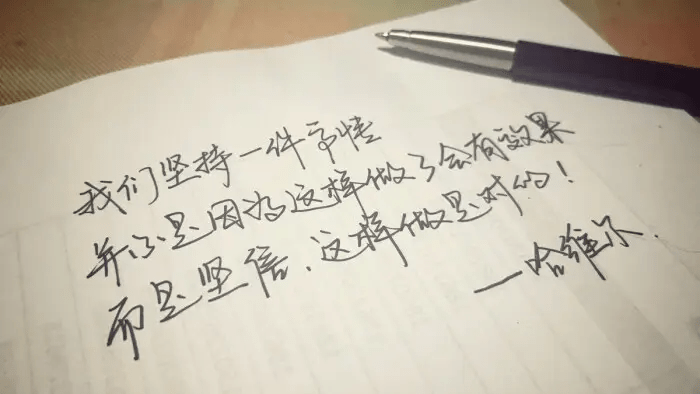 我们坚持一件事情
并不是因为这样做了会有效果
而是坚信、这样做是对的！
一哈维尔